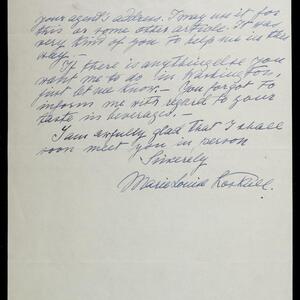 your agent's address. I may use it for
this or some other article. It was
very kind of you to help me in this
way. —
If there is anything else you
want me to do in Washington,
just let me know. — You forgot to
inform me with regard to your
taste in beverages. —
I am awfully glad that I shall
soon meet you in person
Sincerely
Marie Louise